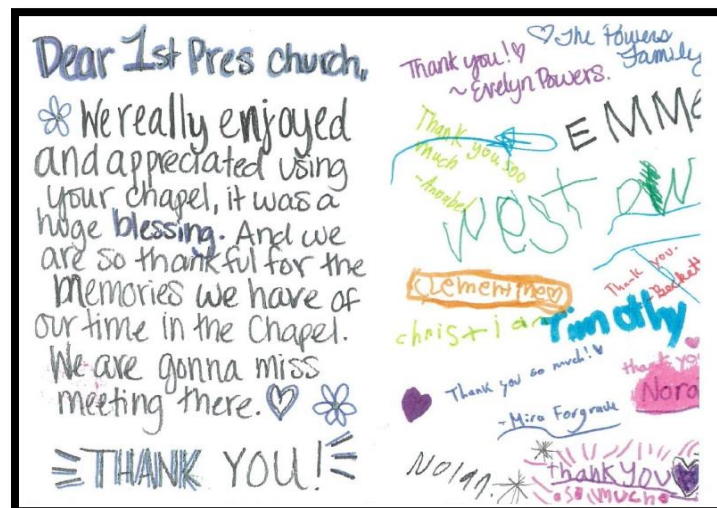 Dear 1st Pres church,
We really enjoyed
and appreciated using
your chapel, it was a
huge blessing. And we
are so thankful for the
memories we have of
our time in the Chapel.
We are gonna miss
meeting there.
THANK YOU!
The Powers
Family
Thank you!
~ Evelyn Powers.
EMME
Thank you soo
much
-Annabel
west
Clementine
Thank you.
-Beckett
christian
Timothy
thank you
Nora
Thank you so much!
-Mira Forgrave
Nolan
thank you
so much